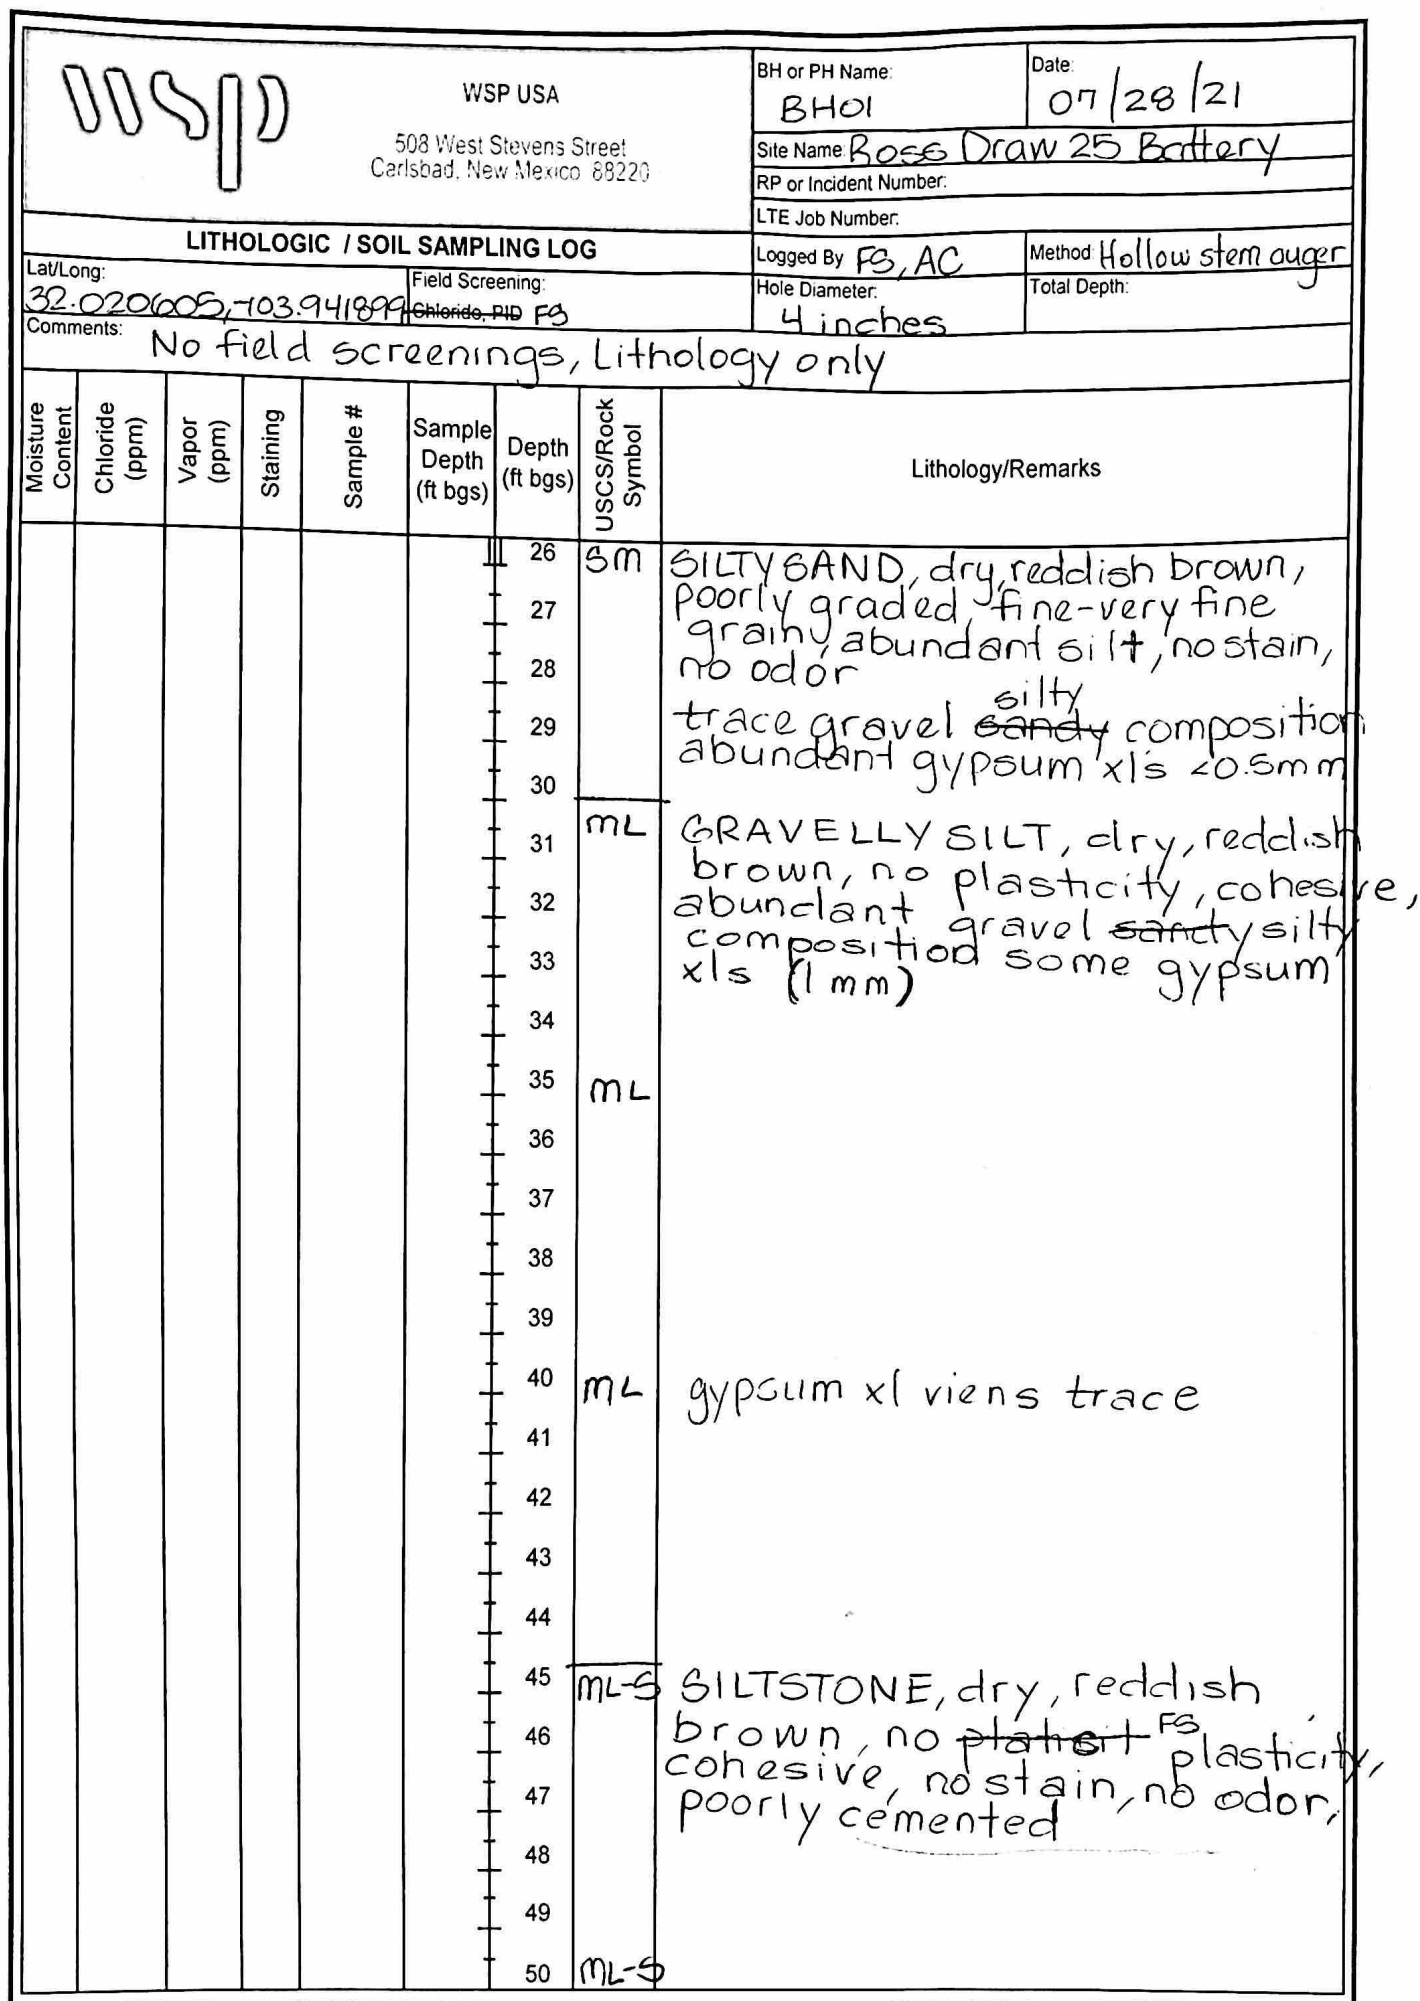 wsp
WSP USA
508 West Stevens Street
Carlsbad, New Mexico 88220
BH or PH Name:
BH01
Date:
07/28/21
Site Name: Ross Draw 25 Battery
RP or Incident Number:
LTE Job Number:
LITHOLOGIC / SOIL SAMPLING LOG
Logged By FS, AC
Method: Hollow stem auger
Lat/Long:
32.020605,-103.941899
Field Screening:
Chloride, PID FS
Hole Diameter:
4 inches
Total Depth:
Comments: No field screenings, Lithology only
Moisture Content
Chloride (ppm)
Vapor (ppm)
Staining
Sample #
Sample Depth (ft bgs)
Depth (ft bgs)
USCS/Rock Symbol
Lithology/Remarks
26 SM SILTY SAND, dry, reddish brown,
27 poorly graded, fine-very fine
grain, abundant silt, no stain,
28 no odor
silty
29 trace gravel sandy composition
abundant gypsum xls <0.5mm
30
ML GRAVELLY SILT, dry, reddish
31 brown, no plasticity, cohesive,
32 abundant gravel sandy silty
33 composition some gypsum
xls (1 mm)
34
35 ML
36
37
38
39
40 ML gypsum xl viens trace
41
42
43
44
45 ML-S SILTSTONE, dry, reddish
46 brown, no platisit FS plasticity,
cohesive, no stain, no odor,
47 poorly cemented
48
49
50 ML-S